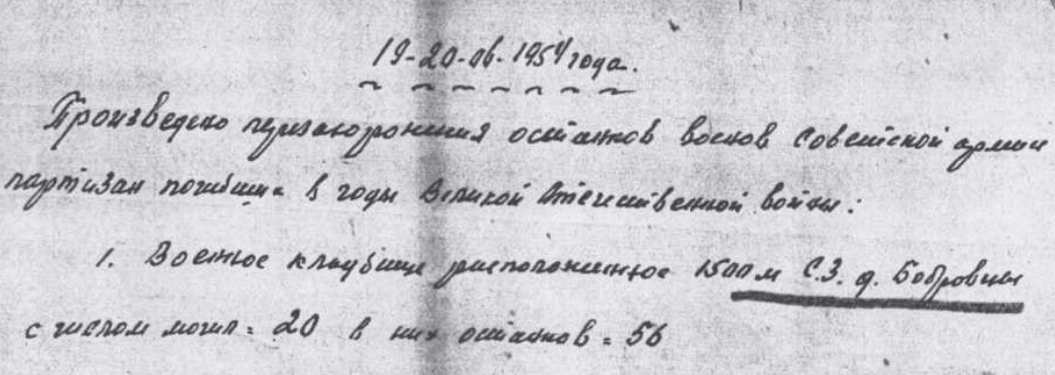 19-20-06-1954 года.
Произведено перезахоронения останков воинов Советской армии
партизан погибших в годы Великой Отечественной войны:
1. Военное кладбище расположенное 1500 м С.З. д. Бобровцы
с числом могил = 20 в них останков = 56